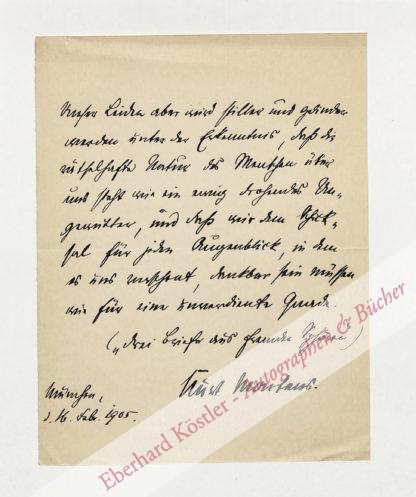 Unser Leiden aber wird stiller und gelinder
werden unter der Erkenntnis, daß die
rätselhafte Natur des Menschen über
uns steht wie ein ewig drohendes Un-
gewitter, und daß wir dem Schick-
sal für jeden Augenblick, in dem
es uns verschont, dankbar sein müssen
wie für eine unverdiente Gnade.
(„Drei Briefe aus fremder
Kurt Martens.
München,
d. 16. Febr. 1905.
Eberhard Köstler - Autographen & Bücher